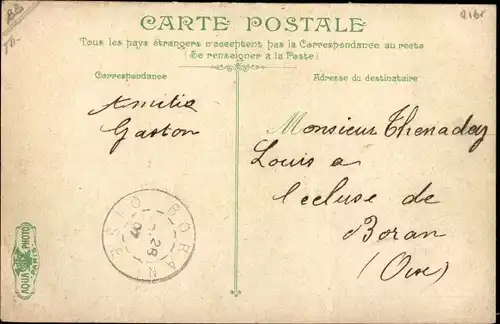 CARTE POSTALE
Tous les pays étrangers n'acceptent pas la Correspondance au recto
(Se renseigner à la Poste)
Correspondance
Adresse du destinataire
Amitié
Gaston
Monsieur Thenadey
Louis a
l'ecluse de
Boran
(Oise)
BORAN
OISE
28
07
AQUA PHOTO
PARIS